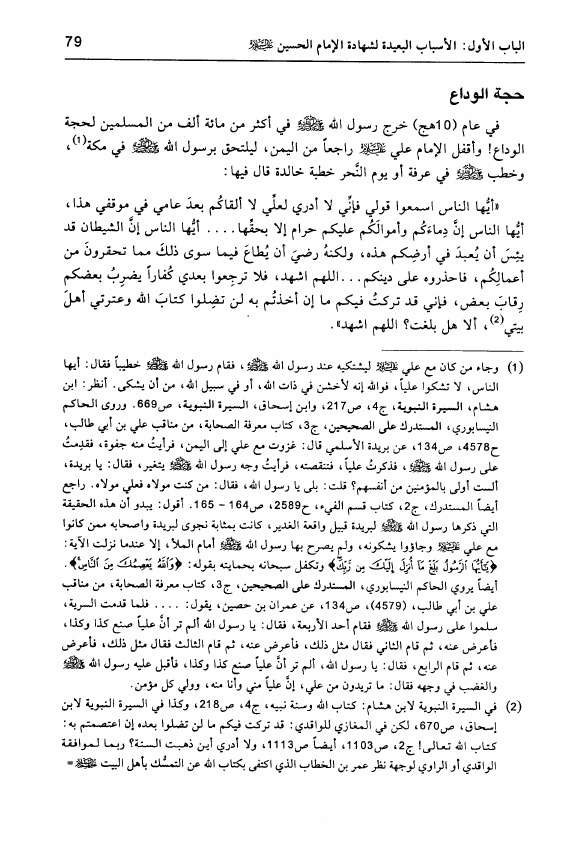 الباب الأول: الأسباب البعيدة لشهادة الإمام الحسين ﷺ 79
حجة الوداع
في عام (10هج) خرج رسول الله ﷺ في أكثر من مائة ألف من المسلمين لحجة
الوداع! وأقفل الإمام علي ﷺ راجعاً من اليمن، ليلتحق برسول الله ﷺ في مكة(1)،
وخطب ﷺ في عرفة أو يوم النَّحر خطبة خالدة قال فيها:
«أيُّها الناس اسمعوا قولي فإنِّي لا أدري لعلِّي لا ألقاكُم بعدَ عامي في موقفي هذا،
أيُّها الناس إنَّ دِماءَكُم وأموالَكُم عليكم حرام إلا بحقِّها.... أيُّها الناس إنَّ الشيطان قد
يئِسَ أن يُعبدَ في أرضِكم هذه، ولكنهُ رضيَ أن يُطاعَ فيما سوى ذلكَ مما تحقرونَ من
أعمالِكُم، فاحذروه على دينكم...اللهم اشهد، فلا ترجِعوا بعدي كُفاراً يضرِبُ بعضكم
رِقابَ بعض، فإني قد تركتُ فيكم ما إن أخذتُم به لن تضِلوا كتابَ الله وعترتي أهلَ
بيتي(2)، ألا هل بلغت؟ اللهم اشهد».
(1) وجاء من كان مع علي ﷺ ليشتكيه عند رسول الله ﷺ، فقام رسول الله ﷺ خطيباً فقال: أيها
الناس، لا تشكوا علياً، فوالله إنه لأخشن في ذات الله، أو في سبيل الله، من أن يشكى. أنظر: ابن
هشام، السيرة النبوية، ج4، ص217، وابن إسحاق، السيرة النبوية، ص669. وروى الحاكم
النيسابوري، المستدرك على الصحيحين، ج3، كتاب معرفة الصحابة، من مناقب علي بن أبي طالب،
ح4578، ص134، عن بريدة الأسلمي قال: غزوت مع علي إلى اليمن، فرأيتُ منه جفوة، فقدِمتُ
على رسول الله ﷺ، فذكرتُ علياً، فتنقصته، فرأيتُ وجه رسول الله ﷺ يتغير، فقال: يا بريدة،
ألست أولى بالمؤمنين من أنفسهم؟ قلت: بلى يا رسول الله، فقال: من كنت مولاه فعلي مولاه. راجع
أيضاً المستدرك، ج2، كتاب قسم الفيء، ح2589، ص164 - 165. أقول: يبدو أن هذه الحقيقة
التي ذكرها رسول الله ﷺ لبريدة قبيل واقعة الغدير، كانت بمثابة نجوى لبريدة واصحابه ممن كانوا
مع علي ﷺ وجاؤوا يشكونه، ولم يصرح بها رسول الله ﷺ أمام الملأ، إلا عندما نزلت الآية:
﴿يَٰٓأَيُّهَا ٱلرَّسُولُ بَلِّغۡ مَآ أُنزِلَ إِلَيۡكَ مِن رَّبِّكَ﴾ وتكفل سبحانه بحمايته بقوله: ﴿وَٱللَّهُ يَعۡصِمُكَ مِنَ ٱلنَّاسِ﴾.
أيضاً يروي الحاكم النيسابوري، المستدرك على الصحيحين، ج3، كتاب معرفة الصحابة، من مناقب
علي بن أبي طالب، (4579)، ص134، عن عمران بن حصين، يقول: .... فلما قدمت السرية،
سلموا على رسول الله ﷺ فقام أحد الأربعة، فقال: يا رسول الله ألم تر أنَّ علياً صنع كذا وكذا،
فأعرض عنه، ثم قام الثاني فقال مثل ذلك، فأعرض عنه، ثم قام الثالث فقال مثل ذلك، فأعرض
عنه، ثم قام الرابع، فقال: يا رسول الله، ألم تر أنَّ علياً صنع كذا وكذا، فأقبل عليه رسول الله ﷺ
والغضب في وجهه فقال: ما تريدون من علي، إنَّ علياً مني وأنا منه، وولي كل مؤمن.
(2) في السيرة النبوية لابن هشام: كتاب الله وسنة نبيه، ج4، ص218، وكذا في السيرة النبوية لابن
إسحاق، ص670، لكن في المغازي للواقدي: قد تركت فيكم ما لن تضلوا بعده إن اعتصمتم به:
كتاب الله تعالى! ج2، ص1103، أيضاً ص1113، ولا أدري أين ذهبت السنة؟ ربما لموافقة
الواقدي أو الراوي لوجهة نظر عمر بن الخطاب الذي اكتفى بكتاب الله عن التمسُّك بأهل البيت ﷺ =